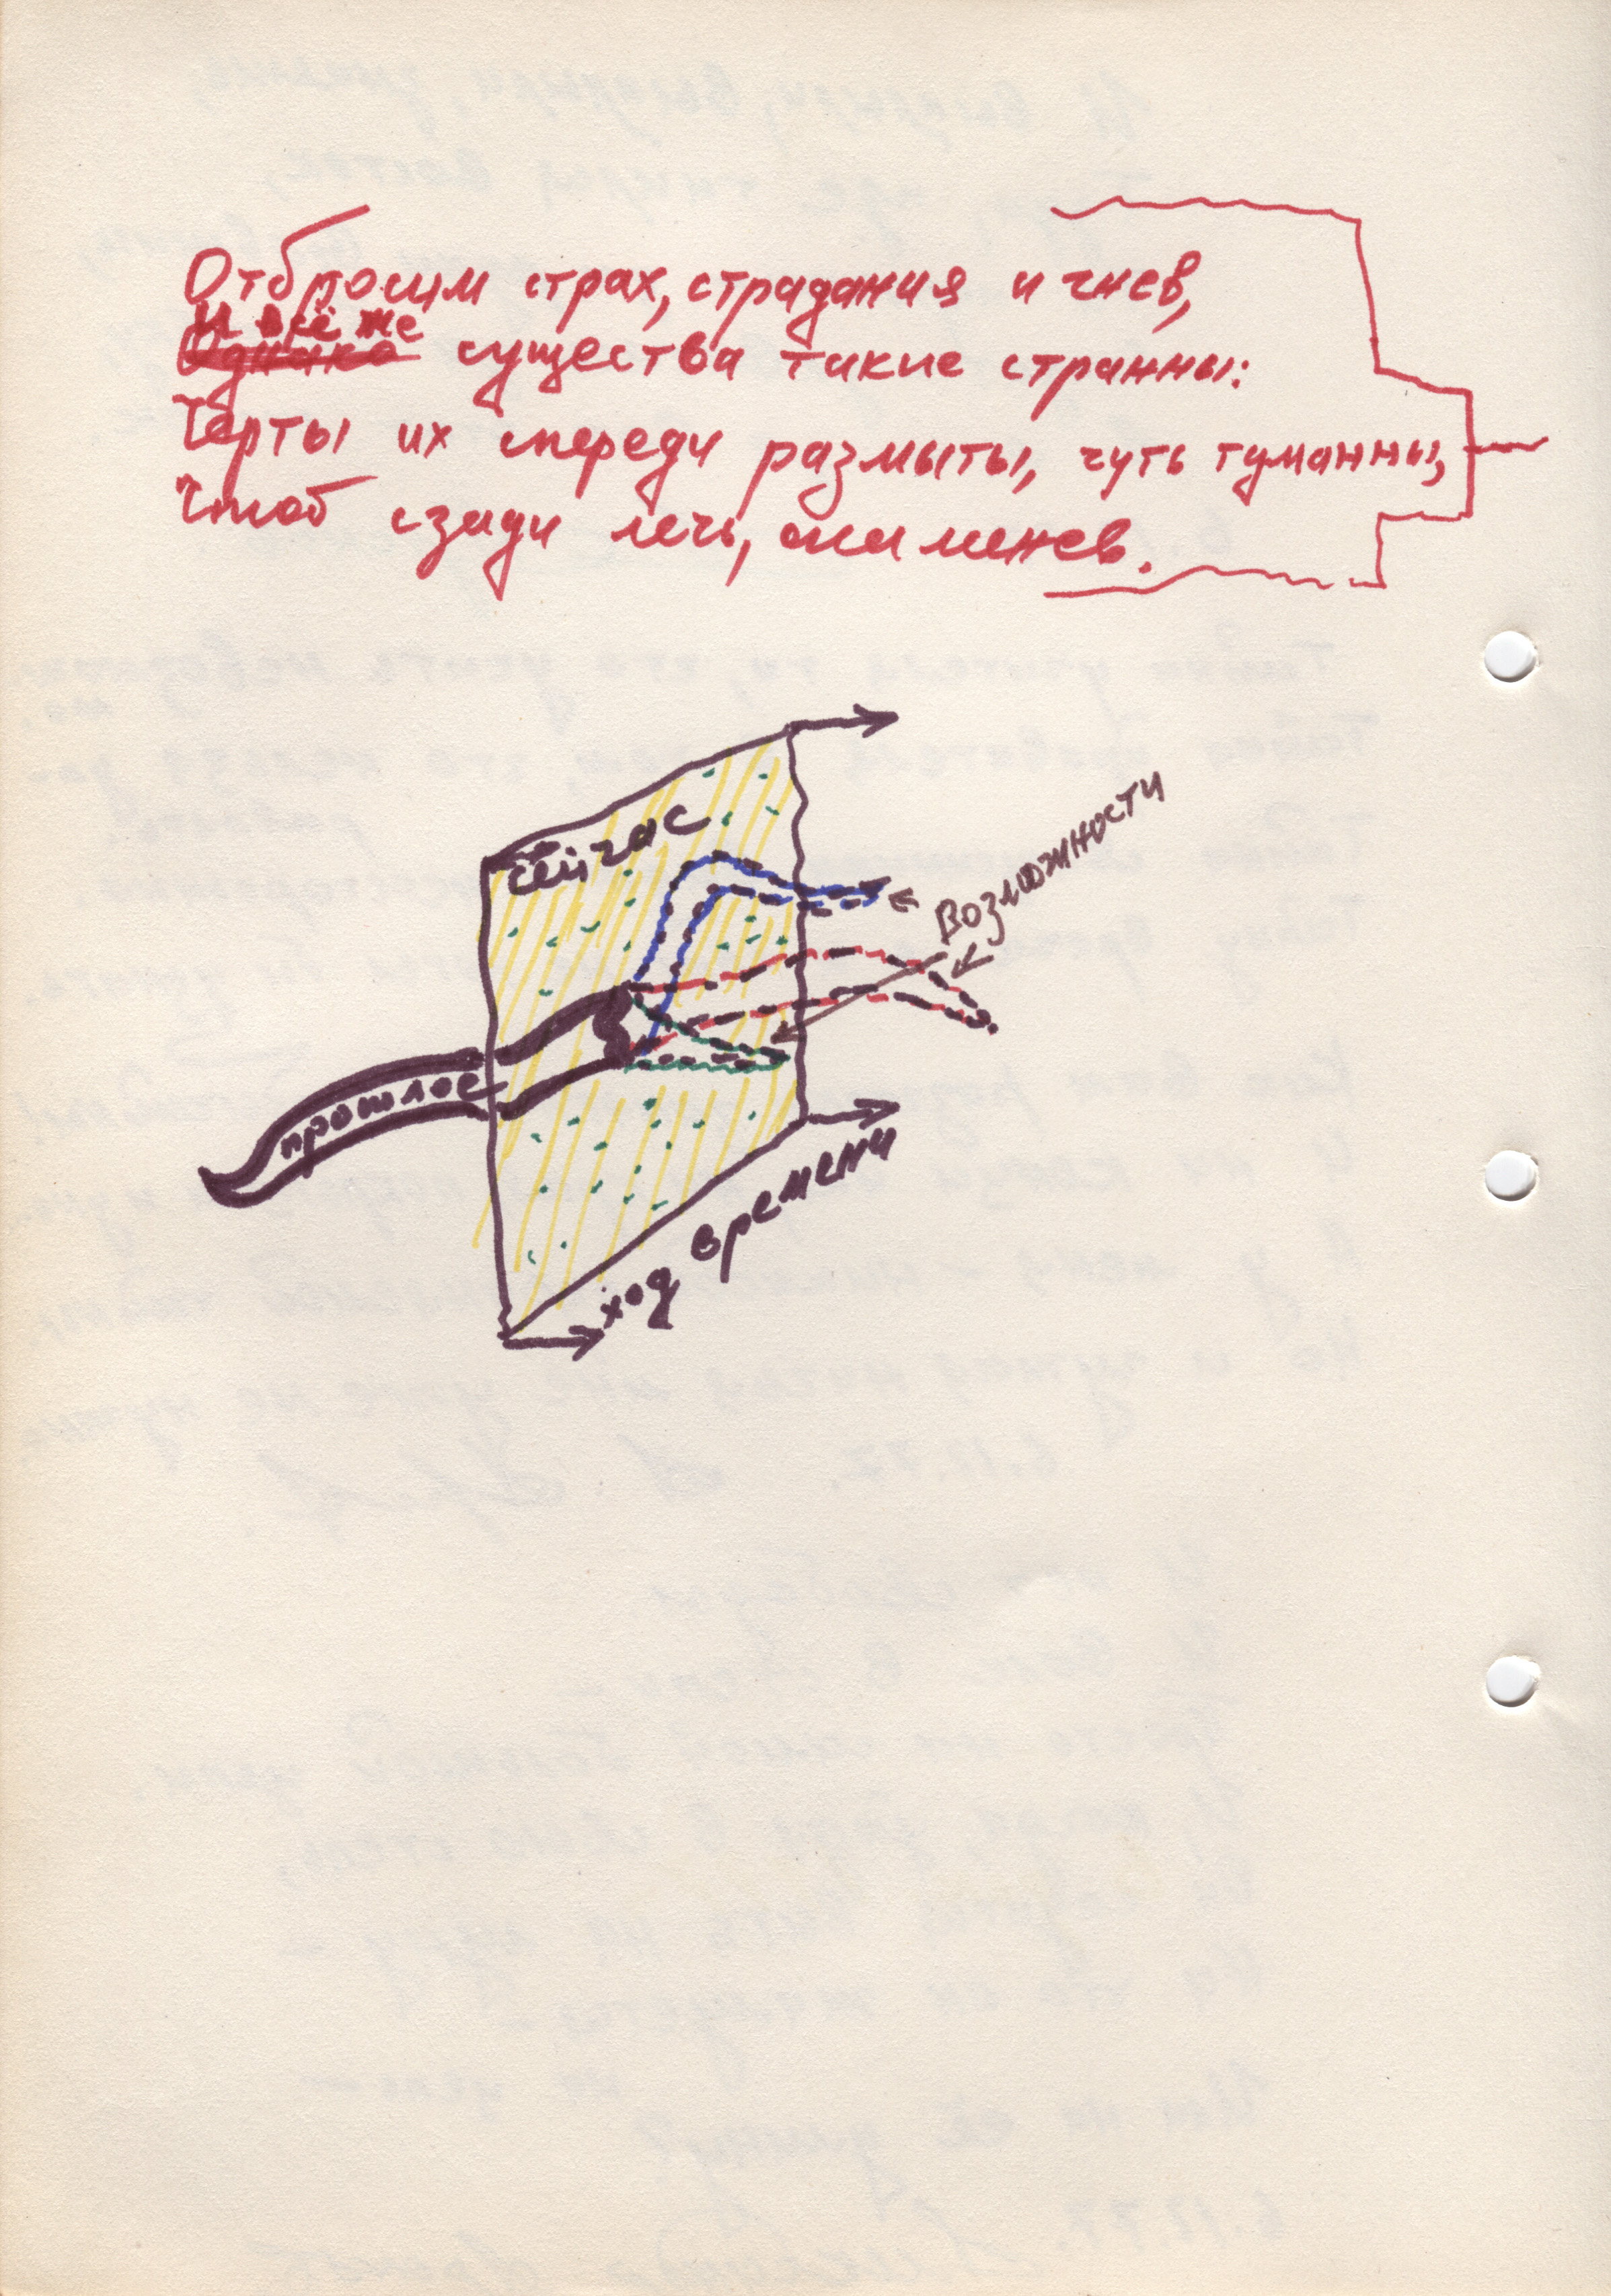 Отбросим страх, страдания и гнев,
И всё же
Однако существа такие странны:
Черты их спереди размыты, чуть туманны,
Чтоб сзади лечь,
сейчас
Возможности
прошлое
ход времени